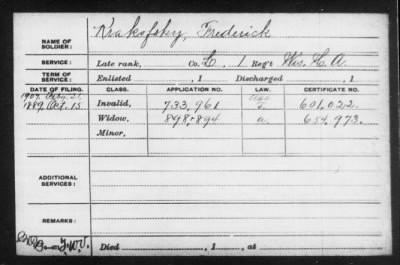 NAME OF SOLDIER: Kraksfsky, Frederick
SERVICE: Late rank, Co. L, 1 Reg't Wis. H. A.
TERM OF SERVICE: Enlisted , 1 Discharged , 1
DATE OF FILING. CLASS. APPLICATION NO. LAW. CERTIFICATE NO.
1907
1889, Oct. 15 Invalid, 733,961 601,022
Widow, 898,894 a. 654,973.
Minor,
ADDITIONAL SERVICES:
REMARKS:
Died , 1 , at